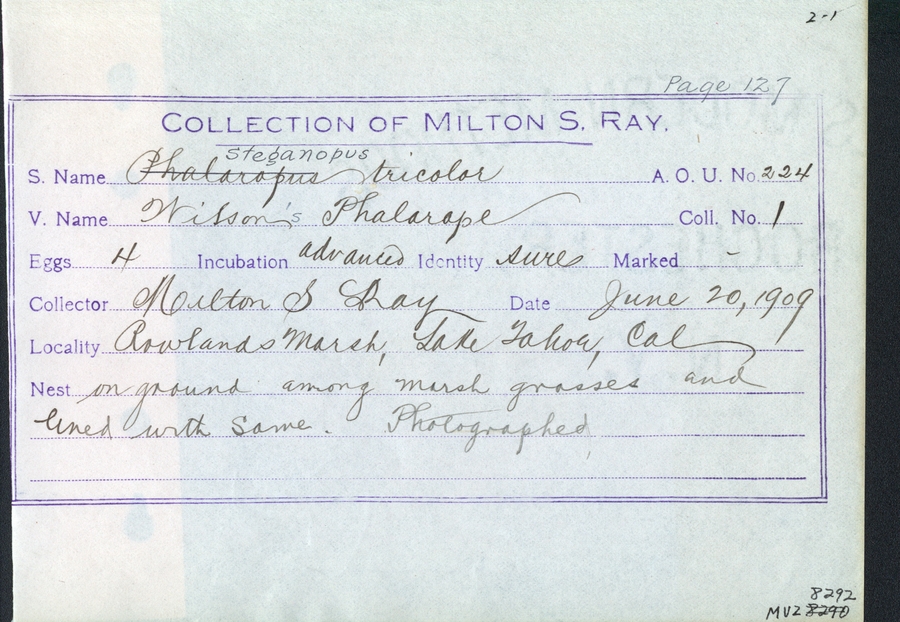 2-1
Page 127
COLLECTION OF MILTON S. RAY.
Steganopus
S. Name Phalaropus tricolor A. O. U. No. 224
V. Name Wilson's Phalarope Coll. No. 1
Eggs 4 Incubation advanced Identity sure Marked -
Collector Milton S Ray Date June 20, 1909
Locality Rowlands Marsh, Lake Tahoe, Cal
Nest on ground among marsh grasses and
lined with same. Photographed
8292
MVZ 8290